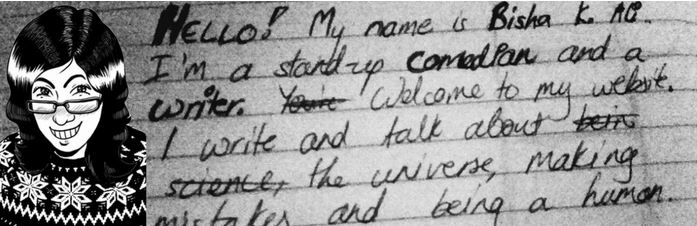 HELLO! My name is Bisha K. Ali.
I'm a stand-up comedian and a
writer. You're Welcome to my website.
I write and talk about bein
science, the universe, making
mistakes and being a human.